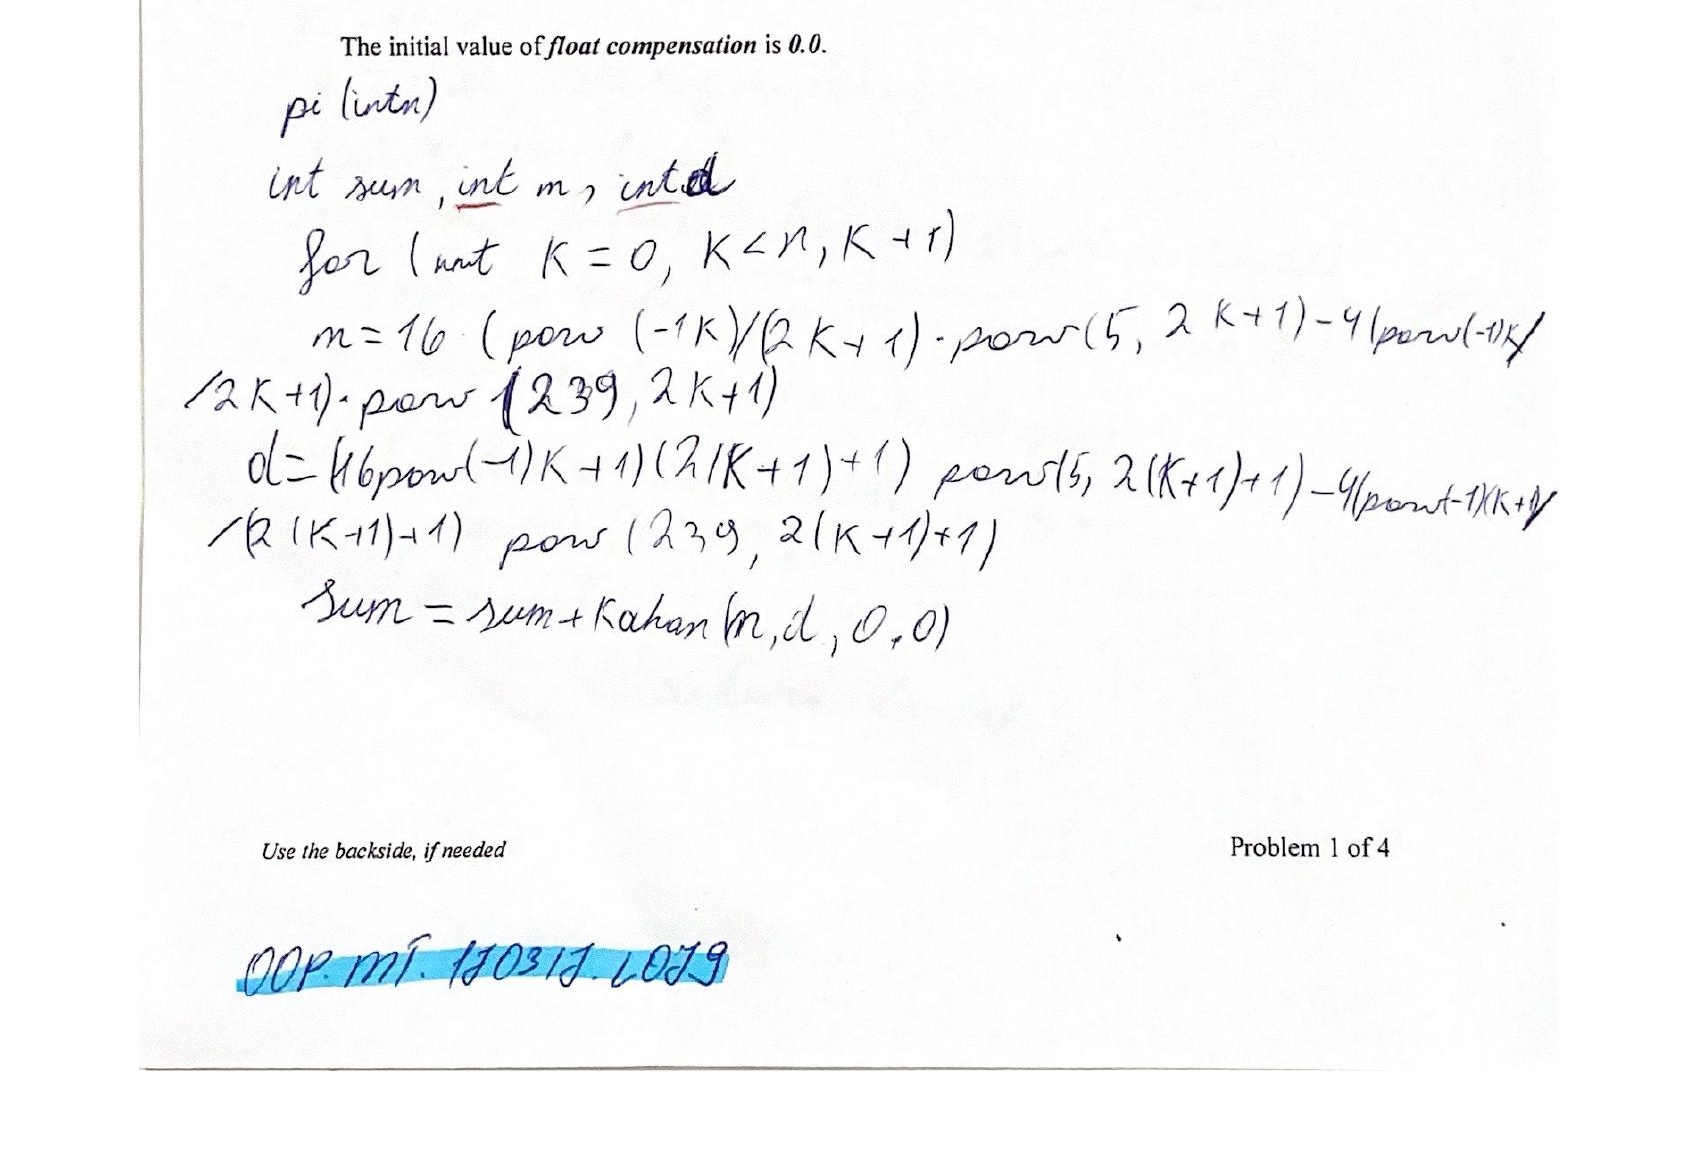 The initial value of float compensation is 0.0.
pi (int n)
int sum, int m, int d
for (int K = 0, K < n, K + 1)
m = 16 · (pow (-1K)/(2K + 1) · pow(5, 2K+1) - 4(pow(-1)K/
/2K+1) · pow (239, 2K+1)
d = (16pow(-1)K+1)(2(K+1)+1) pow(5, 2(K+1)+1) - 4(pow(-1)(K+1)/
/(2(K+1)+1) pow (239, 2(K+1)+1)
Sum = sum + Kahan (m, d, 0.0)
Use the backside, if needed
Problem 1 of 4
OOP. MT. 170317. L079